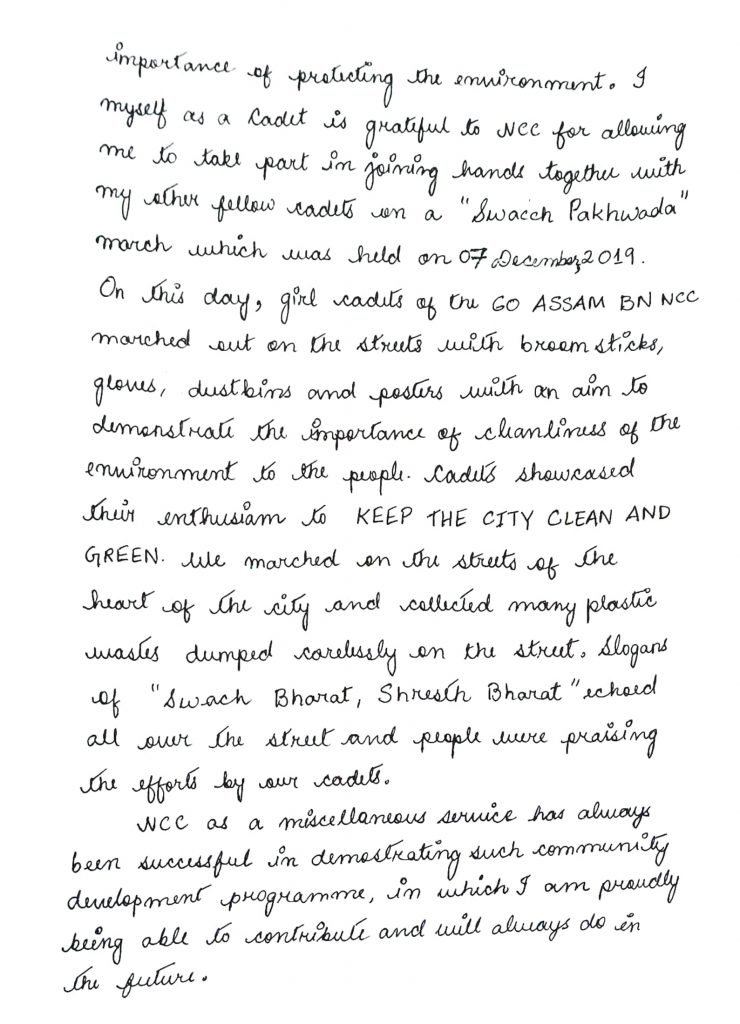 importance of protecting the environment. I
myself as a Cadet is grateful to NCC for allowing
me to take part in joining hands together with
my other fellow cadets on a "Swacch Pakhwada"
march which was held on 07 December, 2019.
On this day, girl cadets of the 60 ASSAM BN NCC
marched out on the streets with broom sticks,
gloves, dustbins and posters with an aim to
demonstrate the importance of cleanliness of the
environment to the people. Cadets showcased
their enthusiam to KEEP THE CITY CLEAN AND
GREEN. We marched on the streets of the
heart of the city and collected many plastic
wastes dumped carelessly on the street. Slogans
of "Swach Bharat, Shresth Bharat" echoed
all over the street and people were praising
the efforts by our cadets.
NCC as a miscellaneous service has always
been successful in demostrating such community
development programme, in which I am proudly
being able to contribute and will always do in
the future.